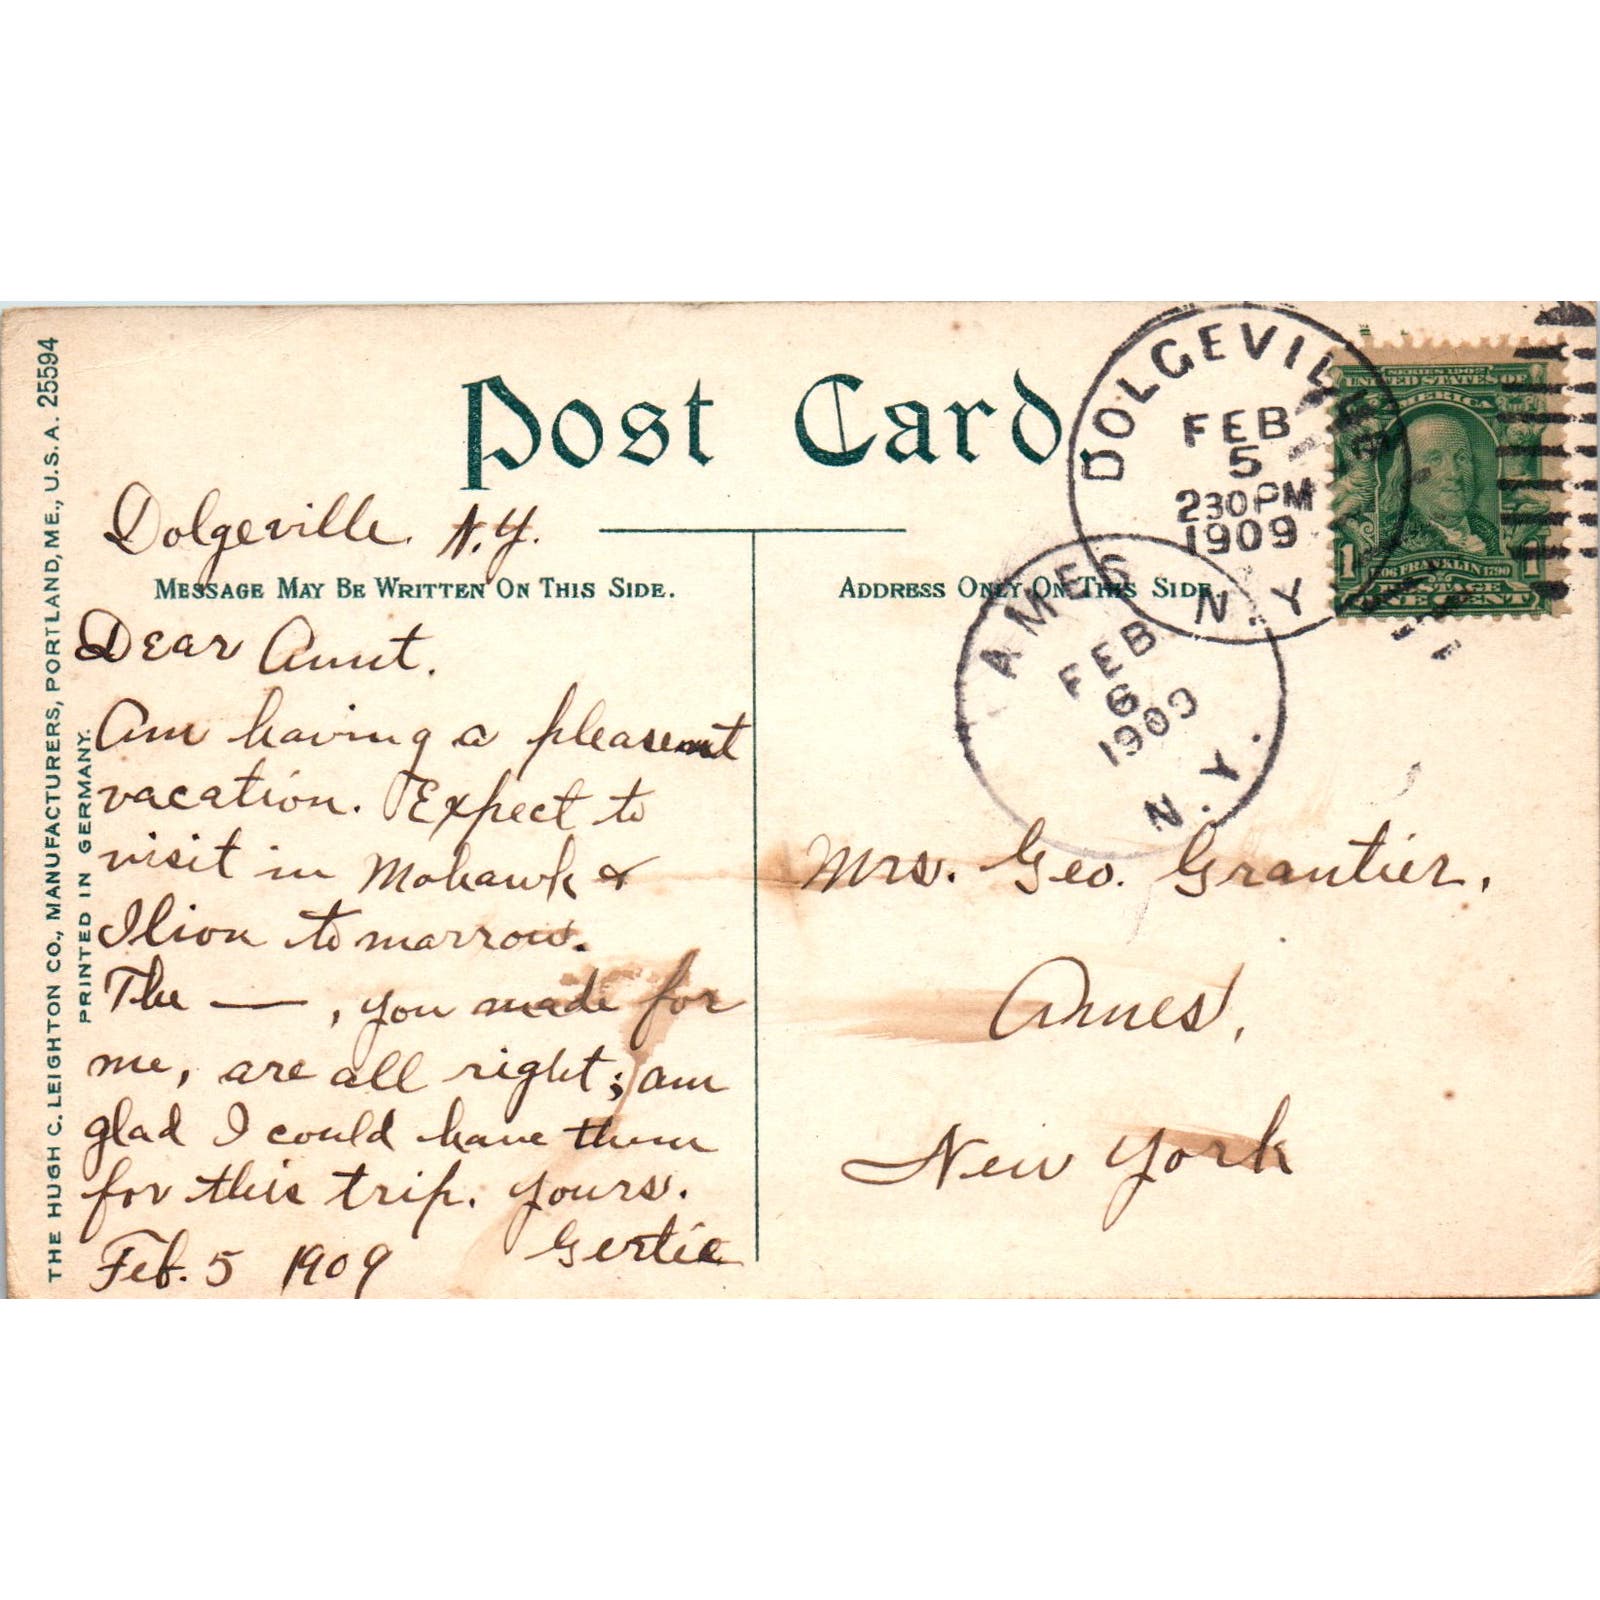 THE HUGH C. LEIGHTON CO., MANUFACTURERS, PORTLAND, ME., U.S.A. 25594
PRINTED IN GERMANY.
Post Card.
Dolgeville. N.Y.
MESSAGE MAY BE WRITTEN ON THIS SIDE.
Dear Aunt.
Am having a pleasent
vacation. Expect to
visit in Mohawk &
Ilion to marrow.
The — , you made for
me, are all right; am
glad I could have them
for this trip. Yours.
Gertie
Feb. 5 1909
ADDRESS ONLY ON THIS SIDE.
DOLGEVILLE
FEB
5
230PM
1909
N.Y.
AMES
FEB
6
1909
N.Y.
SERIES 1902
UNITED STATES OF
AMERICA
1706 FRANKLIN 1790
1 1
POSTAGE
ONE CENT
Mrs. Geo. Grantier.
Ames,
New York